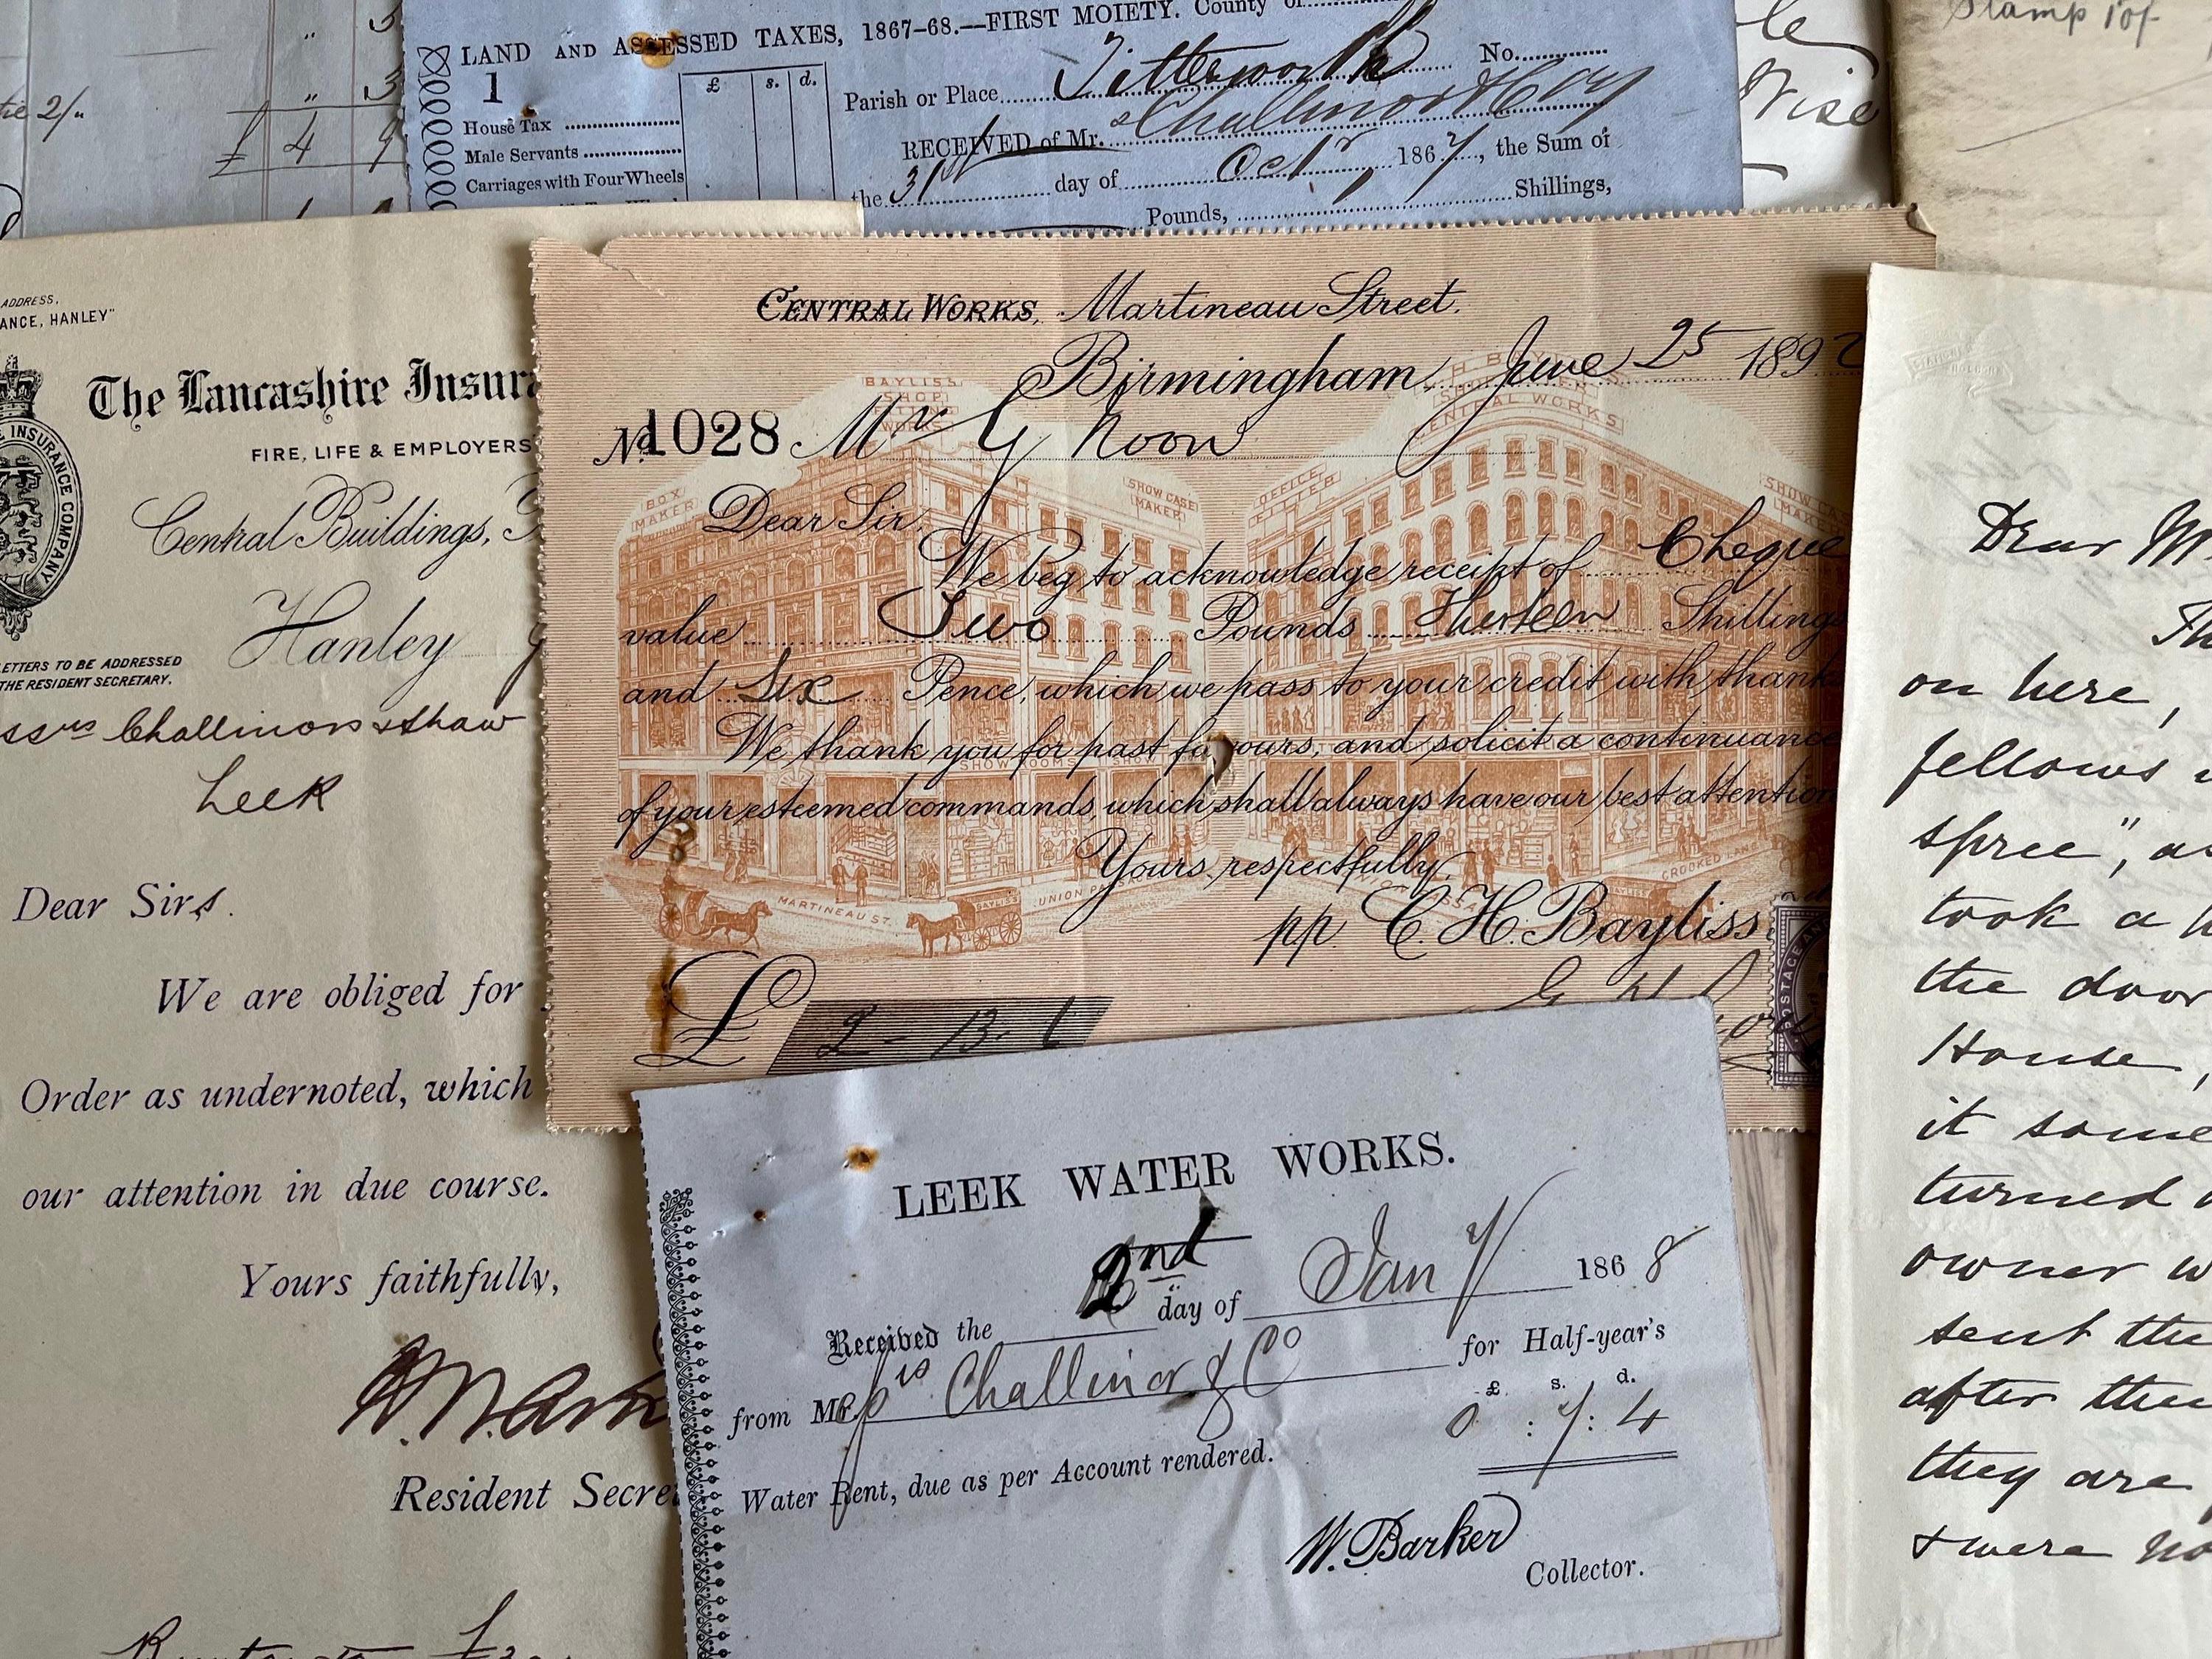 Stamp 10/-
LAND AND ASSESSED TAXES, 1867-68.—FIRST MOIETY. County of
1
£ s. d.
House Tax
Male Servants
Carriages with Four Wheels
Parish or Place Titterworth No.
RECEIVED of Mr. Challinor & Hay
the 31st day of Octr 1867, the Sum of
Pounds, Shillings,
2/"
" 3
" 3
£ 4 9
Wise
ADDRESS,
ANCE, HANLEY"
The Lancashire Insura
FIRE, LIFE & EMPLOYERS
INSURANCE COMPANY
Central Buildings,
Hanley
LETTERS TO BE ADDRESSED
THE RESIDENT SECRETARY.
ssrs Challinors & Shaw
Leek
Dear Sirs.
We are obliged for
Order as undernoted, which
our attention in due course.
Yours faithfully,
Resident Secre
CENTRAL WORKS, Martineau Street.
Birmingham June 25 1892
No. 1028 Mr G Noon
Dear Sir,
We beg to acknowledge receipt of Cheque
value Two Pounds Thirteen Shillings
and Six Pence, which we pass to your credit with thanks
We thank you for past favours, and solicit a continuance
of your esteemed commands, which shall always have our best attention
Yours respectfully,
pp. C. H. Bayliss
£ 2-13-6
BAYLISS
SHOP
FITTING
WORKS
BOX
MAKER
SHOW CASE
MAKER
OFFICE
FITTER
CENTRAL WORKS
SHOW CASE
SHOW ROOMS
MARTINEAU ST.
BAYLISS
UNION PASSAGE
CROOKED LANE
POSTAGE AND
LEEK WATER WORKS.
Received the 2nd day of Jany 1868
from Mr Challinor & Co for Half-year's
£. s. d.
0 : 7 : 4
Water Rent, due as per Account rendered.
W. Barker
Collector.
Dear M
on here,
fellows
spree", as
took a
the door
House,
it some
turned
owner w
sent the
after the
they are
& were no